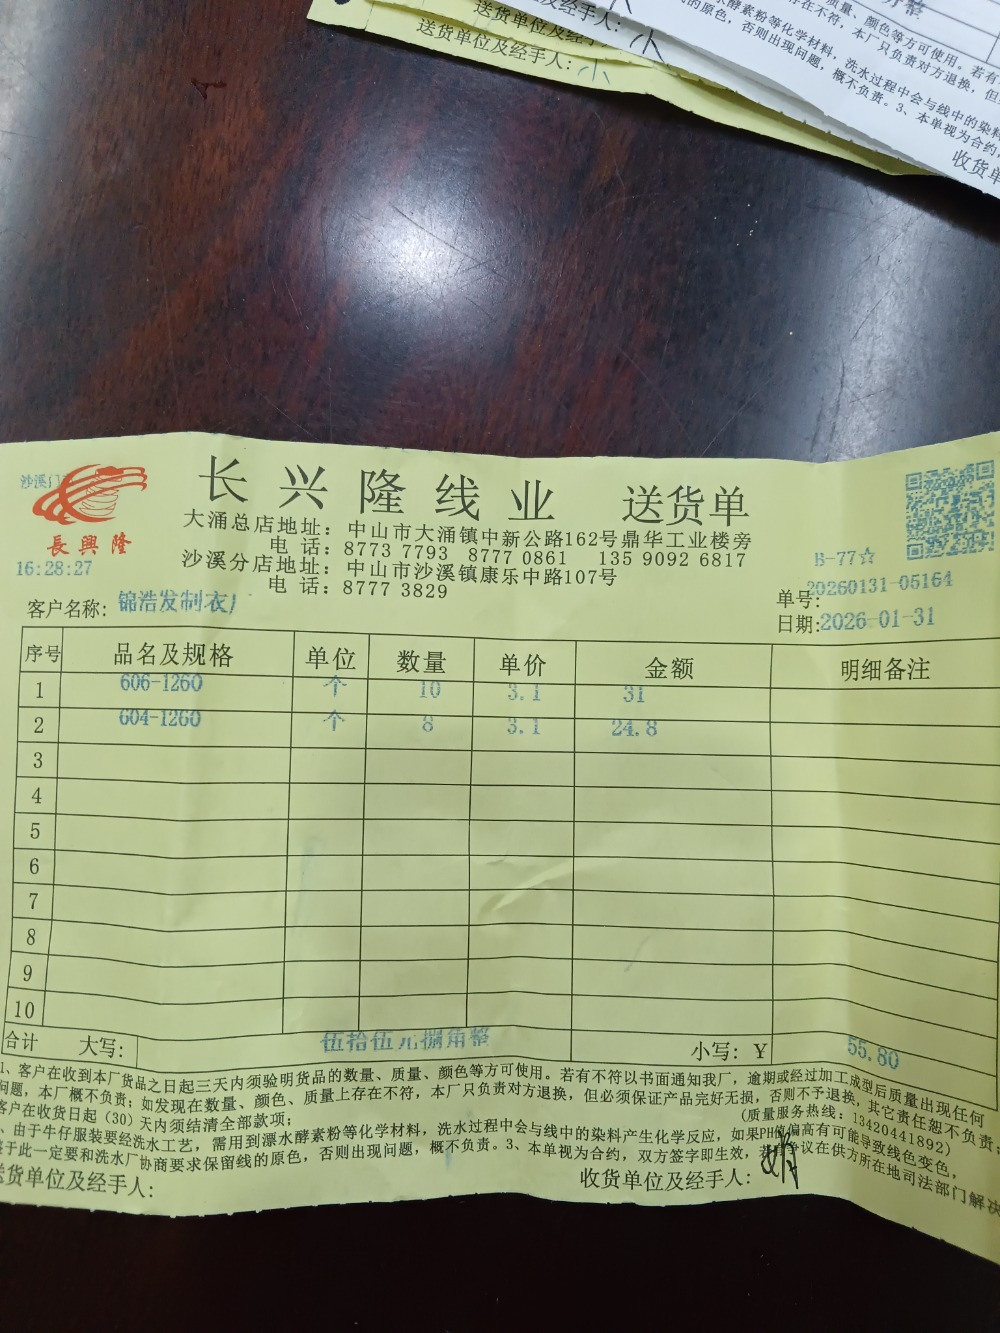 送货单位及经手人：
送货单位及经手人：小
质量、颜色等方可使用。若有
存在不符，本厂只负责对方退换，但
水酵素粉等化学材料，洗水过程中会与线中的染料
的原色，否则出现问题，概不负责。3、本单视为合约，
收货单
沙溪门
長興隆
16:28:27
长兴隆线业 送货单
大涌总店地址：中山市大涌镇中新公路162号鼎华工业楼旁
电话：8773 7793 8777 0861 135 9092 6817
沙溪分店地址：中山市沙溪镇康乐中路107号
电话：8777 3829
B-77☆
单号：20260131-05164
客户名称：锦浩发制衣厂
日期：2026-01-31
序号 品名及规格 单位 数量 单价 金额 明细备注
1 606-1260 个 10 3.1 31
2 604-1260 个 8 3.1 24.8
3
4
5
6
7
8
9
10
合计 大写：伍拾伍元捌角整 小写：￥ 55.80
1、客户在收到本厂货品之日起三天内须验明货品的数量、质量、颜色等方可使用。若有不符以书面通知我厂，逾期或经过加工成型后质量出现任何
问题，本厂概不负责；如发现在数量、颜色、质量上存在不符，本厂只负责对方退换，但必须保证产品完好无损，否则不予退换，其它责任恕不负责；
客户在收货日起（30）天内须结清全部款项； （质量服务热线：13420441892）
、由于牛仔服装要经洗水工艺，需用到漂水酵素粉等化学材料，洗水过程中会与线中的染料产生化学反应，如果PH值偏高有可能导致线色变色，
基于此一定要和洗水厂协商要求保留线的原色，否则出现问题，概不负责。3、本单视为合约，双方签字即生效，若有争议在供方所在地司法部门解决
送货单位及经手人： 收货单位及经手人：